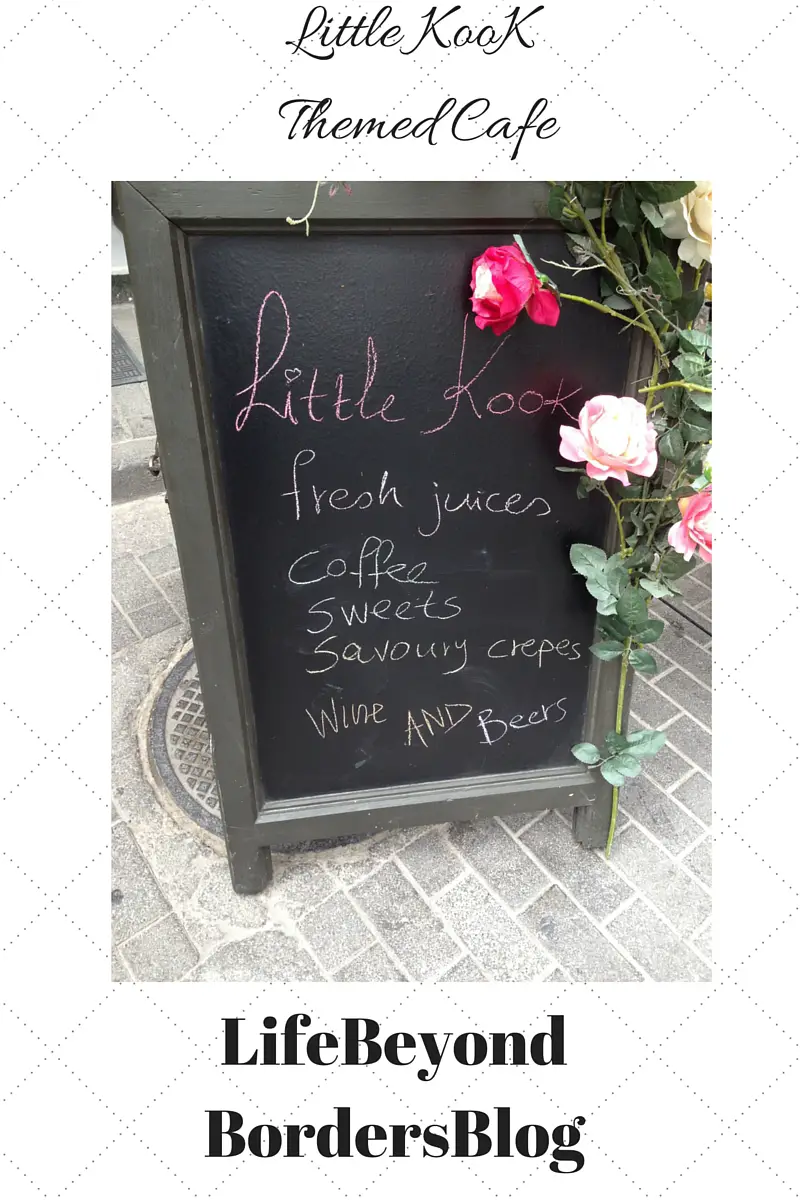 Little KooK
Themed Cafe
Little Kook
fresh juices
Coffee
Sweets
Savoury crepes
Wine AND Beers
LifeBeyond
BordersBlog